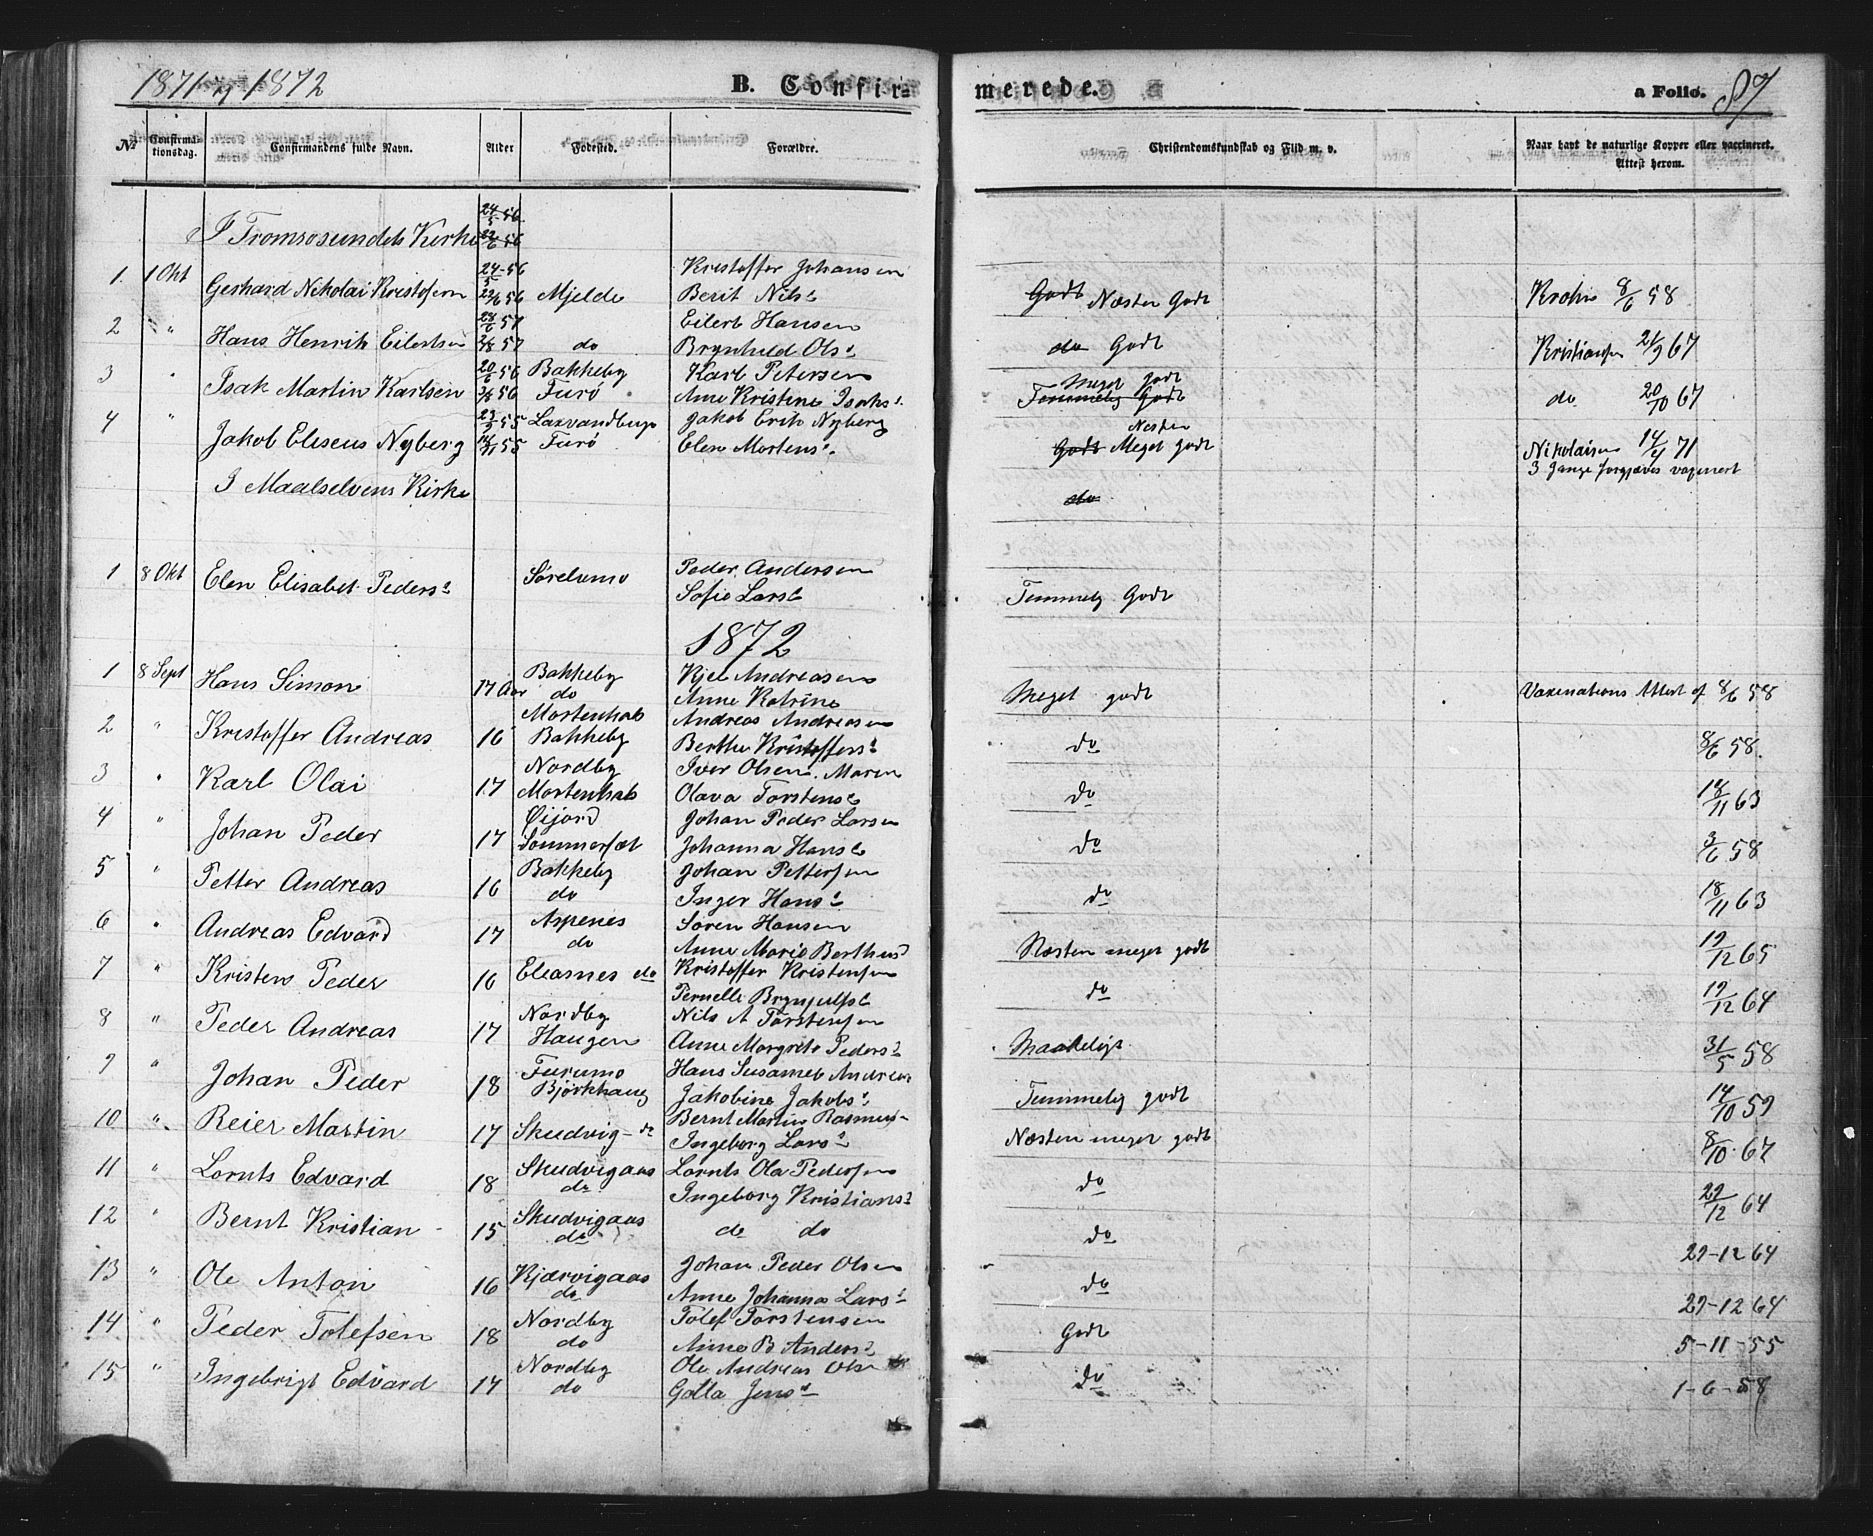 1871 og 1872 B. Confirmerede. a Folio. 87
No Confirmationsdag. Confirmandens fulde Navn. Alder Fødested. Forældre. Christendomskundskab og Flid m. v. Naar havt de naturlige Kopper eller vaccineret. Attest herom.
24/5 56
I Tromsøsundets Kirke 22/6 56
1. 1 Okt 24/5-56 Kristoffer Johansen
Gerhard Nikolai Kristofersen 22/6 56 Mjelde Berit Nilsd Godt Næsten Godt Krohn 8/6 58
2 " 28/6 57 Eilert Hansen
Hans Henrik Eilertsen 2/8 57 do Brynhild Olsd do Godt Kristiansen 21/9 67
3 " 20/6 56 Bakkeby Karl Petersen Meget godt
Isak Martin Karlsen 3/8 56 Furø Ane Kristine Isaksd Temmelig Godt do 20/10 67
4 " 23/9 55 Laxvandbugt Jakob Erik Nyberg Næsten
Jakob Eliseus Nyberg 14/11 55 Furø Elen Mortensd Godt Meget godt Nikolaisen 14/4 71
3 Gange forgjæves vaxinert
I Maalselvens Kirke do
1 8 Okt Elen Elisabet Pedersd Sørelvmo Peder Andersen
Sofie Larsd Temmelig Godt
1872
1 8 Sept Hans Simon 17 Aar Bakkeby Kjel Andreasen
do Anne Katrine Meget godt Vaxinations Attest af 8/6 58
2 " Kristoffer Andreas 16 Mortenhals Andreas Andreasen
Bakkeby Berthe Kristoffersd do 8/6 58.
3 " Karl Olai 17 Nordby Iver Olsen. Maren
Mortenhals Olava Torstensd do 18/11 63
4 " Johan Peder 17 Øijord Johan Peder Larsen
Sommersæt Johanna Hansd do 3/6 58
5 " Petter Andreas 16 Bakkeby Johan Pettersen
do Inger Hansd do 18/11 63
6 " Andreas Edvard 17 Aspenes Søren Hansen
do Anne Marie Bertheusd Næsten meget godt 19/12 65
7 " Kristen Peder 16 Eleasnes do Kristoffer Kristensen
Pernelle Brynjulfsd do 19/12 64
8 " Peder Andreas 17 Nordby Nils A Torstensen
Haugen Anne Margrete Pedersd Maadeligt 31/5 58
9 " Johan Peder 18 Furumo Hans Susameb Andreas
Bjørkhaug Jakobine Jakobsd Temmelig godt 14/10 59
10 " Reier Martin 17 Skudvig - do Bernt Martin Rasmus-
Ingeborg Larsd Næsten meget godt 8/10 67
11 " Lornts Edvard 18 Skudvigaas Lornts Ola Pedersen
do Ingeborg Kristiansd do 29/12 64
12 " Bernt Kristian 15 Skudvigaas
do do do do 29-12 64
13 " Ole Anton 16 Kjærvigaas Johan Peder Olsen
do Anne Johanna Larsd do 29-12 64
14 " Peder Tolefsen 18 Nordby Tolef Torstensen
do Anne B. Andersd Godt 5-11-55
15 " Ingebrigt Edvard 17 Nordby Ole Andreas Olsen
do Golla Jensd do 1-6-58